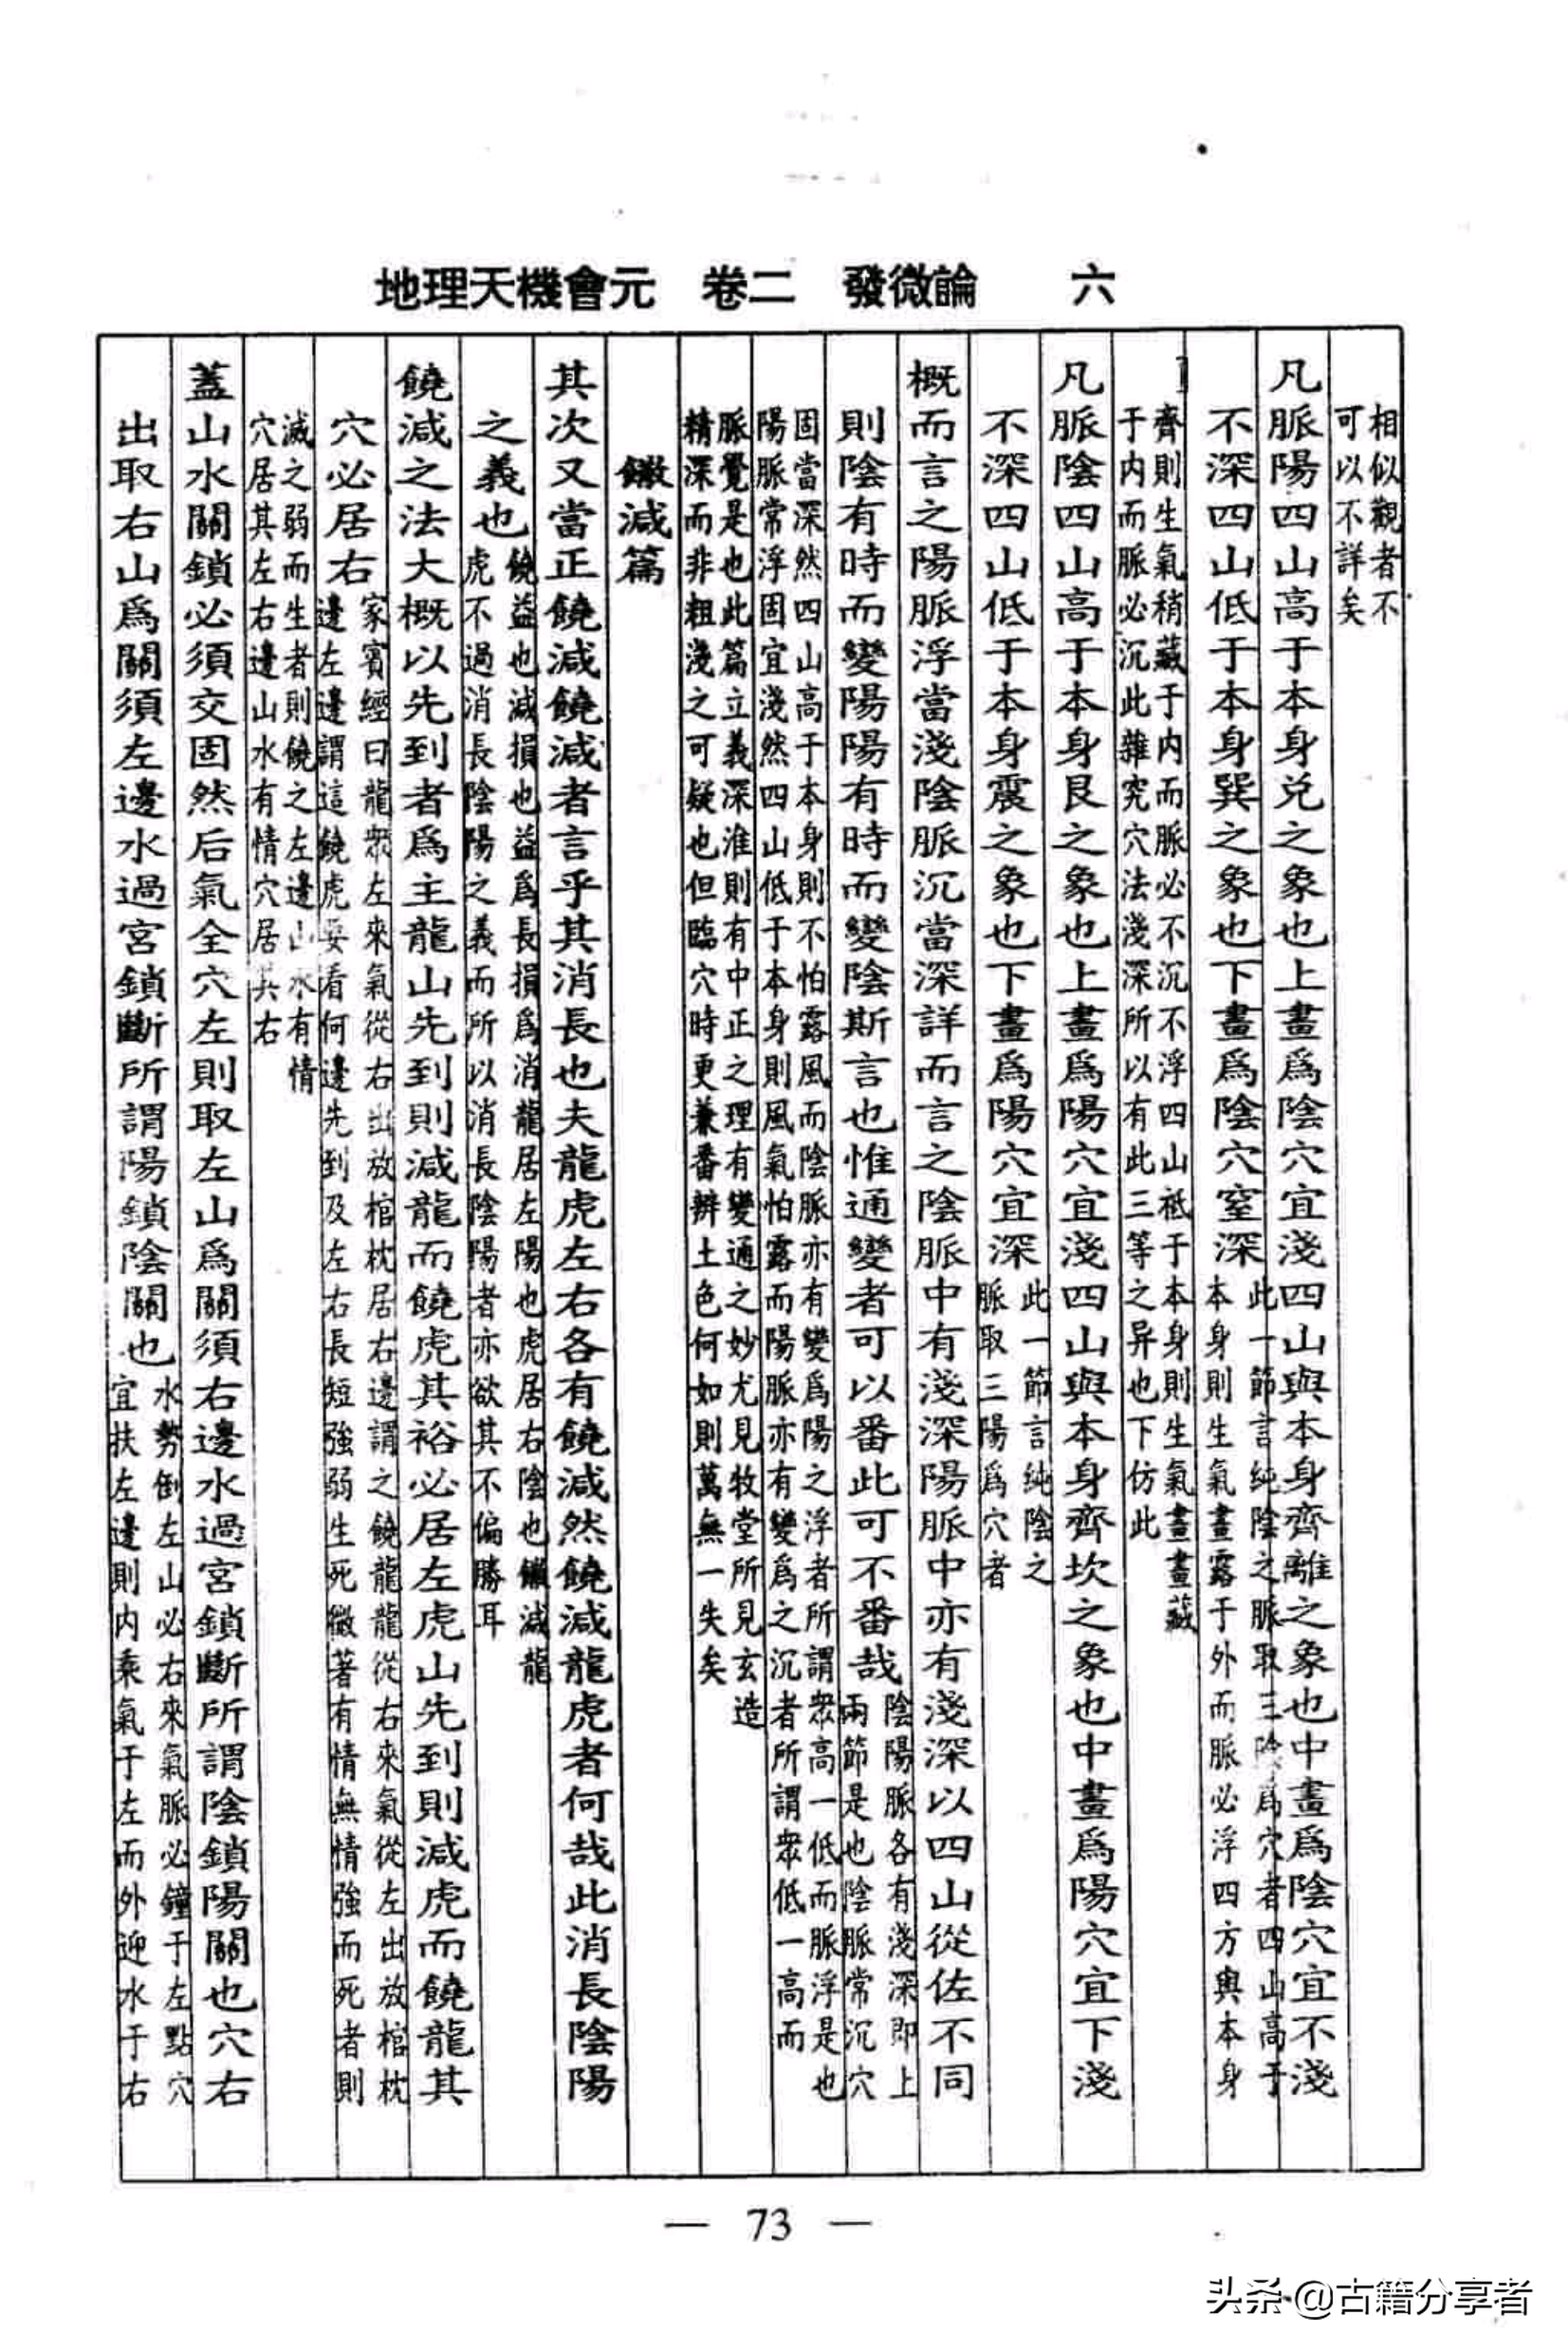 地理天機會元　卷二　發微論　　六
相似觀者不
可以不詳矣
凡脈陽四山高于本身兌之象也上畫爲陰穴宜淺四山與本身齊離之象也中畫爲陰穴宜不淺
不深四山低于本身巽之象也下畫爲陰穴窒深
此一節言純陰之脈取三陰爲穴者四山高于
本身則生氣畫露于外而脈必浮四方與本身
齊則生氣稍藏于内而脈必不沉不浮四山祗于本身則生氣畫畫藏
于内而脈必沉此雜究穴法淺深所以有此三等之异也下仿此
凡脈陰四山高于本身艮之象也上畫爲陽穴宜淺四山與本身齊坎之象也中畫爲陽穴宜下淺
不深四山低于本身震之象也下畫爲陽穴宜深
此一節言純陰之
脈取三陽爲穴者
概而言之陽脈浮當淺陰脈沉當深詳而言之陰脈中有淺深陽脈中亦有淺深以四山從佐不同
則陰有時而變陽陽有時而變陰斯言也惟通變者可以番此可不番哉
陰陽脈各有淺深即上
兩節是也陰脈常沉穴
固當深然四山高于本身則不怕露風而陰脈亦有變爲陽之浮者所謂眾高一低而脈浮是也
陽脈常浮固宜淺然四山低于本身則風氣怕露而陽脈亦有變爲之沉者所謂眾低一高而
脈覺是也此篇立義深淮則有中正之理有變通之妙尤見牧堂所見玄造
精深而非粗淺之可疑也但臨穴時更兼番辨土色何如則萬無一失矣
減篇
其次又當正饒減饒減者言乎其消長也夫龍虎左右各有饒減然饒減龍虎者何哉此消長陰陽
之義也
饒益也減損也益爲長損爲消龍居左陽也虎居右陰也減龍
虎不過消長陰陽之義而所以消長陰陽者亦欲其不偏勝耳
饒減之法大概以先到者爲主龍山先到則減龍而饒虎其裕必居左虎山先到則減虎而饒龍其
穴必居右
家寶經曰龍眾左來氣從右出放棺枕居右邊謂之饒龍龍從右來氣從左出放棺枕
邊左邊謂這饒虎要看何邊先到及左右長短強弱生死微著有情無情強而死者則
減之弱而生者則饒之左邊山水有情
穴居其左右邊山水有情穴居其右
蓋山水關鎖必須交固然后氣全穴左則取左山爲關須右邊水過宮鎖斷所謂陰鎖陽關也穴右
出取右山爲關須左邊水過宮鎖斷所謂陽鎖陰關也
水勢倒左山必右來氣脈必鐘于左點穴
宜扶左邊則内乘氣于左而外迎水于右
— 73 —
头条@古籍分享者